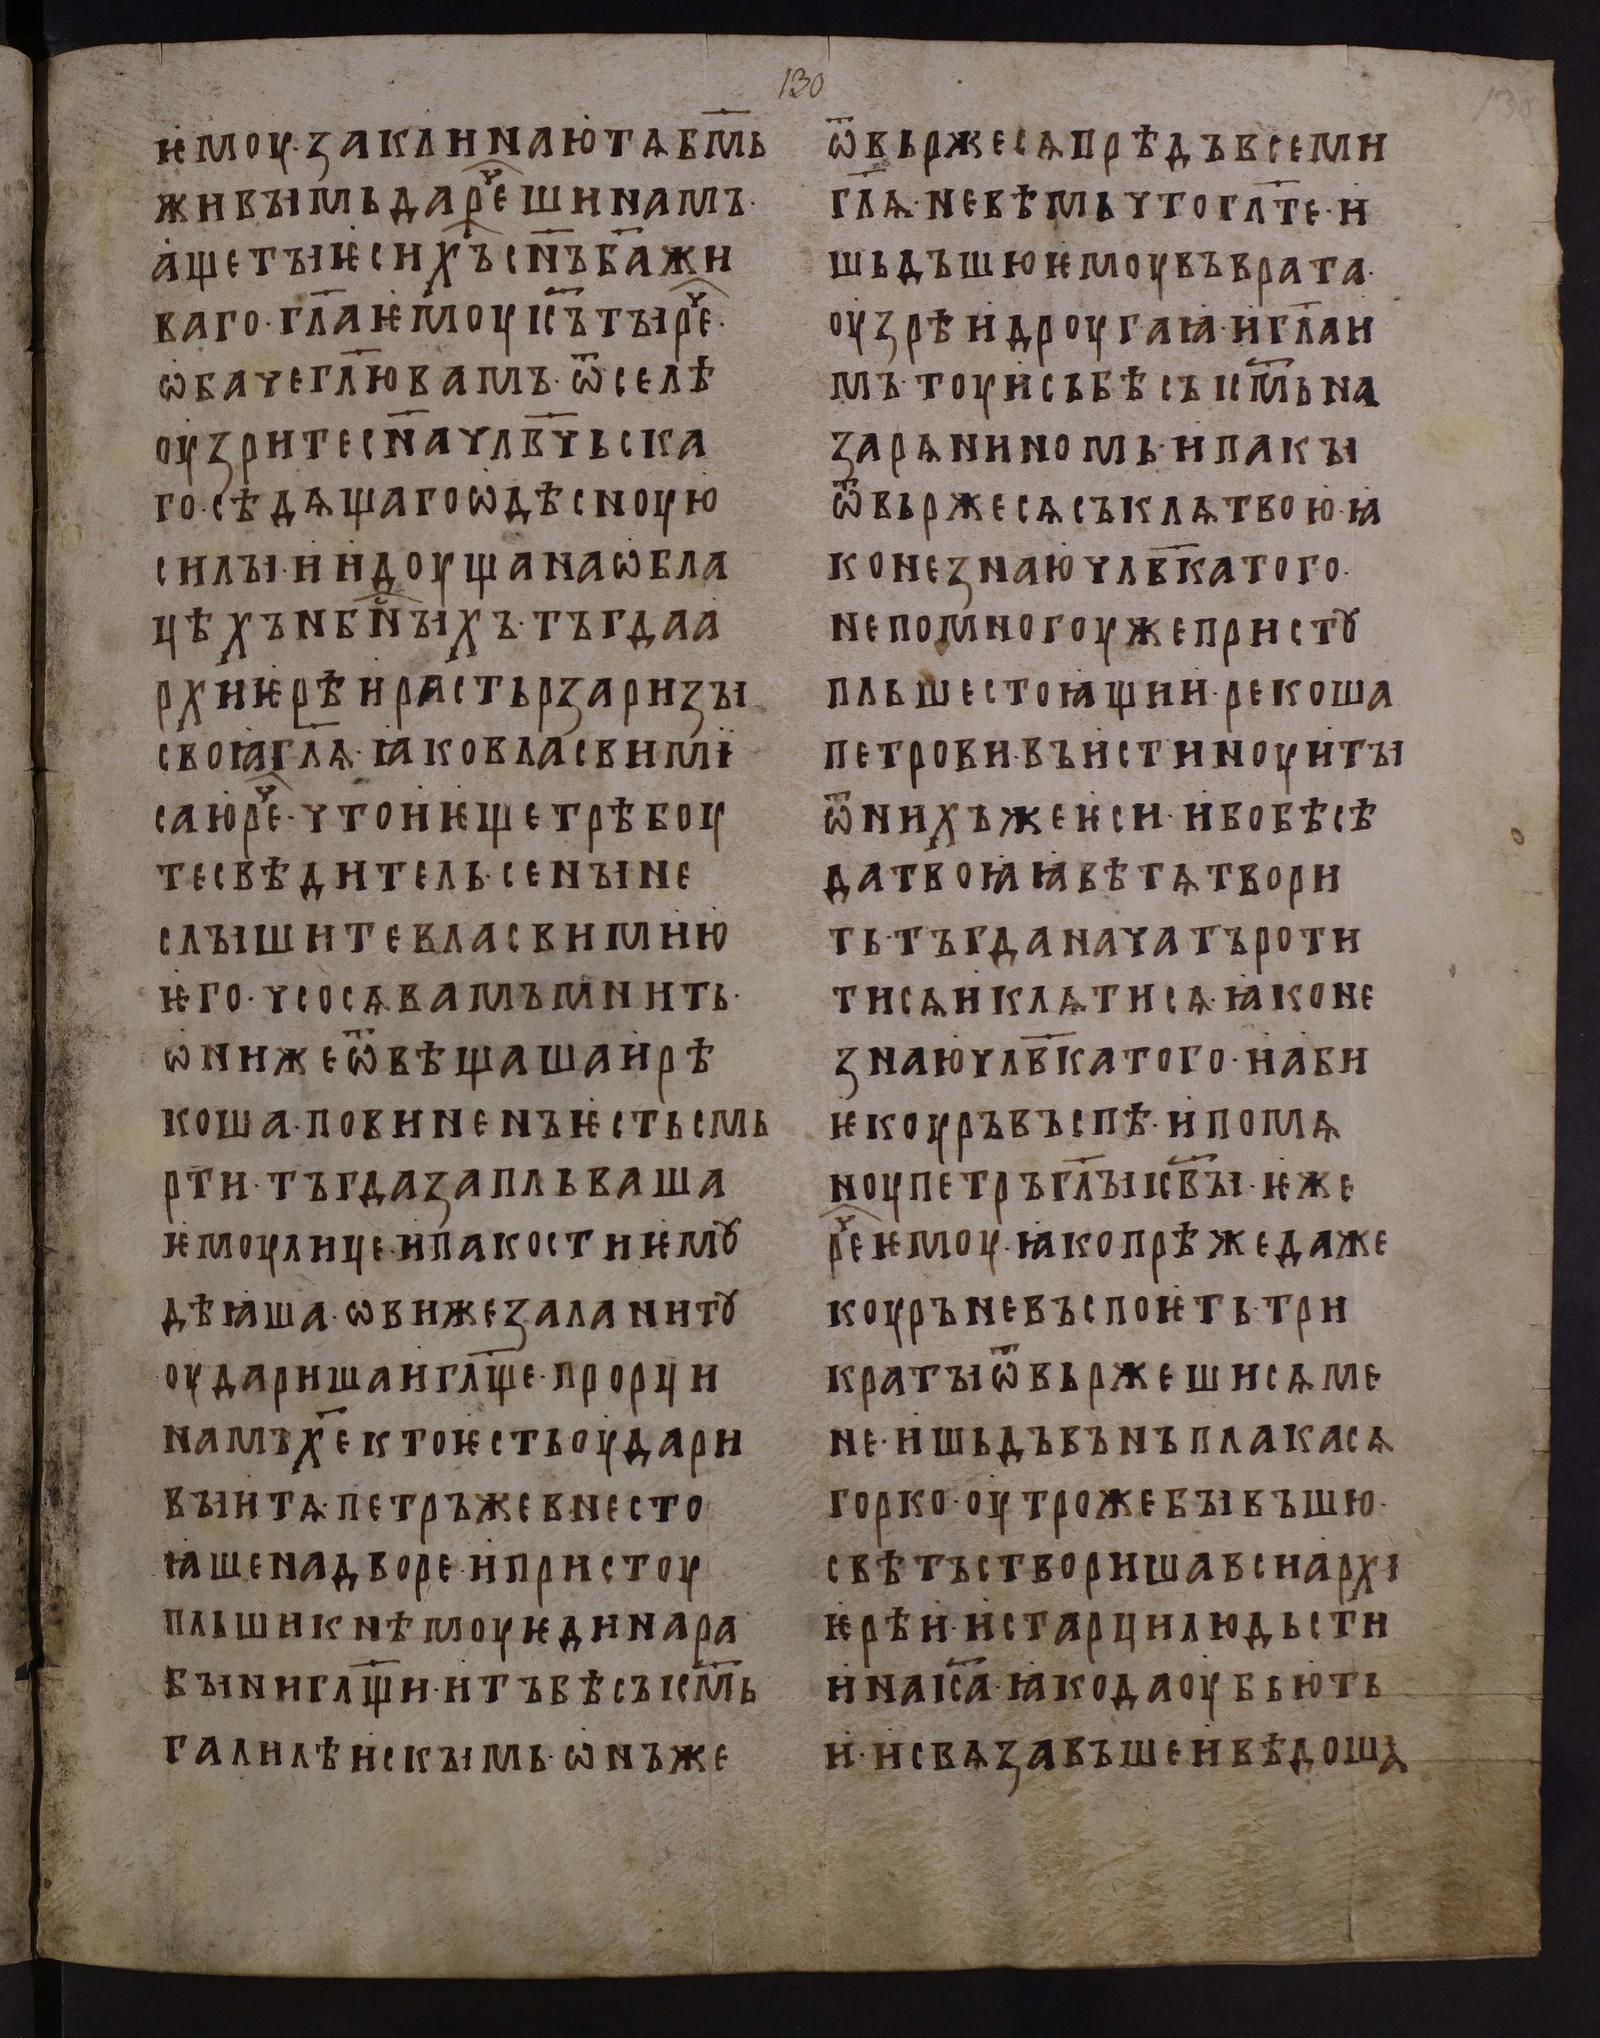 130
ѥмоу· заклинаю тѧ б҃мь
живымь да рⷱ҇еши намъ·
аще ты ѥси х҃ъ сн҃ъ б҃а жи
ваго· гл҃а ѥмоу іс҃ъ ты рⷱ҇е·
ѡбаче гл҃ю вамъ· ѿселѣ
оузрите сн҃а члв҃чьска
го· сѣдѧща го ѡдѣсноую
силы· и идоуща на ѡбла
цѣхъ нбⷭ҇ныхъ· тъгда а
рхиѥрѣи растьрза ризы
своꙗ гл҃ѧ· ꙗко власвимі
саю рⷱ҇е· что и ѥще трѣбоу
те свѣдитель· се ныне
слышите власвимию
ѥго· чсо сѧ вамъ мнить·
ѡни же ѿвѣщаша и рѣ
коша· повиненъ ѥсть смь
рти· тъгда запльваша
ѥмоу лице· и пакости ѥмꙋ
дѣꙗша· ѡви же за ланитꙋ
оударишѧ и гл҃ще· прорци
намъ х҃е кто ѥсть оудари
выи тѧ· петръ же вне сто
ꙗше на дворе· и пристоу
пльши к нѣмоу ѥдина ра
быни гл҃щи· и тъ бѣ съ іс҃мь
галилѣискымь· ѡнъ же
ѿвьрже сѧ прѣдъ всеми
гл҃ѧ· не вѣмь что гл҃те· и
шьдъшю ѥмоу въ врата·
оузрѣ и дроугаꙗ· и гл҃а и
мъ· тоу и сь бѣ съ іс҃мь на
зарѧниномь· и пакы
ѿвьрже сѧ съ клѧтвою· ꙗ
ко не знаю члв҃ка того·
не по многоу же пристꙋ
пльше стоꙗщии· рекоша
петрови· въ истиноу и ты
ѿ нихъ же ѥси· ибо бѣсѣ
да твоꙗ ꙗвѣ тѧ твори
ть· тъгда начатъ роти
ти сѧ и клѧти сѧ· ꙗко не
знаю члв҃ка того· и аби
ѥ коуръ въспѣ· и помѧ
ноу петръ гл҃ы іс҃вы· ѥже
рⷱ҇е ѥмоу· ꙗко прѣже даже
коуръ не въспоѥть· три
краты ѿвьржеши сѧ ме
не· и шьдъ вънъ плака сѧ
горко· оутро же бывъшю·
свѣтъ створиша вси архі
ѥрѣи· и старци людьсти
и на іс҃а· ꙗко да оубьють
и· и свѧзавъше и вѣдошѧ